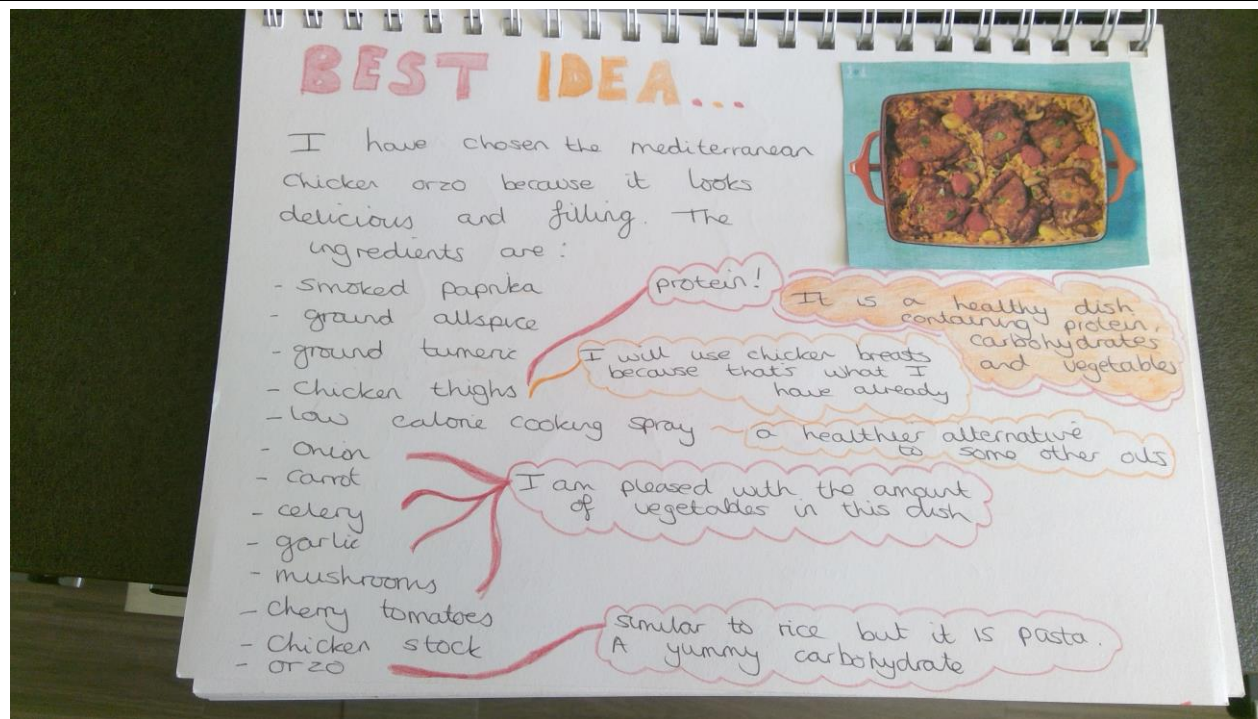 BEST IDEA...
I have chosen the mediterranean
chicken orzo because it looks
delicious and filling. The
ingredients are:
- smoked paprika
- ground allspice
- ground tumeric
- Chicken thighs
- low calorie cooking spray
- onion
- carrot
- celery
- garlic
- mushrooms
- Cherry tomatoes
- Chicken stock
- orzo
protein!
It is a healthy dish
containing protein,
carbohydrates
and vegetables
I will use chicken breasts
because that's what I
have already
a healthier alternative
to some other oils
I am pleased with the amount
of vegetables in this dish
similar to rice but it is pasta.
A yummy carbohydrate